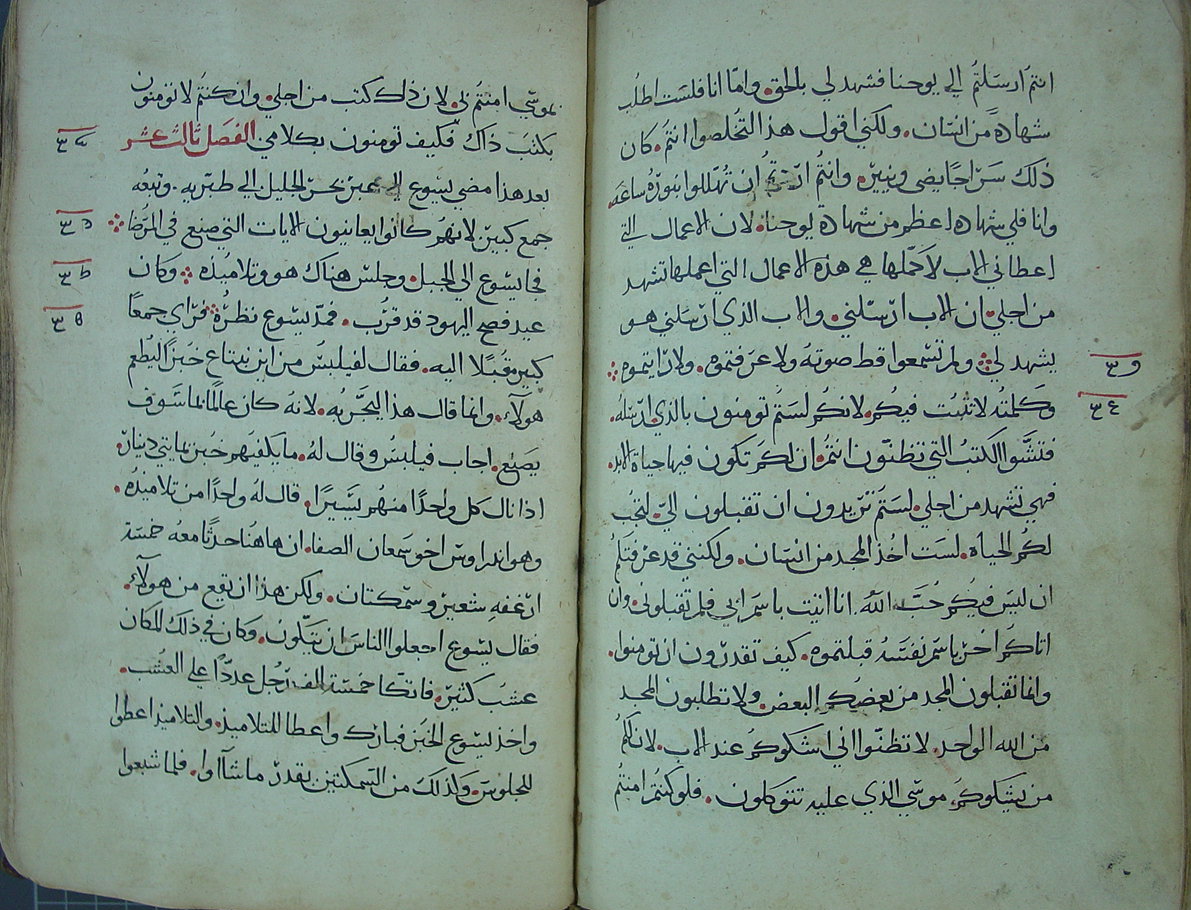 انتم ارسلتم الي يوحنا فشهد لي بالحق. واما انا فلست اطلب
شهادة من انسان. ولكني اقول هذا لتخلصوا انتم. كان
ذلك سراجا يضي وينير. وانتم اردتم ان تهللوا بنوره ساعه.
وانا فلي شهاده اعظم من شهادة يوحنا. لان الاعمال التي
اعطاني الاب لاكملها هي هذه الاعمال التي اعملها تشهد
من اجلي. ان الاب ارسلني. والاب الذي ارسلني هو
يشهد لي. ولم تسمعوا قط صوته ولا عرفتموه. ولا رايتموه
وكلمته لا تثبت فيكم. لانكم لستم تومنون بالذي ارسله.
فتشوا الكتب التي تظنون انتم. ان لكم تكون فيها حياة الابد.
فهي تشهد من اجلي. لستم تريدون ان تقبلون الي. لتجب
لكم الحياه. لست اخذ المجد من انسان. ولكنني قد عرفتكم
ان ليس فيكم حب الله. انا اتيت باسم ابي فلم تقبلوني. وان
اتاكم اخر باسم نفسه قبلتموه. كيف تقدرون ان تومنوا.
وانما تقبلون المجد من بعضكم البعض. ولا تطلبون المجد
من الله الواحد. لا تظنوا اني اشكوكم عند الاب. لان لكم
من يشكوكم. موسي الذي عليه تتوكلون. فلو كنتم امنتم
بموسي امنتم بي. لان ذاك كتب من اجلي. وان كنتم لا تومنون
بكتب ذاك. فكيف تومنون بكلامي الفصل ثالث عشر
بعد هذا مضي يسوع الي عبر بحر الجليل الي طبريه. وتبعه
جمع كبير لانهم كانوا يعاينون الايات التي صنع في المرضا
فجا يسوع الي الجبل. وجلس هناك هو وتلاميذه. وكان
عيد فصح اليهود قد قرب. فمد يسوع نظره. فراي جمعا
كبير مقبلا اليه. فقال لفيلبس من اين نبتاع خبزا ليطعم
هولآء. وانما قال هذا ليجربه. لانه كان عالما بما سوف
يصنع. اجاب فيلبس وقال له. ما يكفيهم خبز بمايتي دينار.
اذا نال كل واحدا منهم يسيرا. قال له واحدا من تلاميذه.
وهو اندراوس اخو سمعان الصفا. ان هاهنا حدثا معه خمسة
ارغفه شعير وسمكتان. ولكن هذا ان يقع من هولآء.
فقال يسوع اجعلوا الناس ان يتكون. وكان في ذلك المكان
عشب كثير. فاتكا خمسة الف رجل عددا علي العشب.
واخذ يسوع الخبز فبارك واعطا للتلاميذ. والتلاميذ اعطوا
للجلوس. ولذلك من السمكتين بقدر ما شآاوا. فلما شبعوا